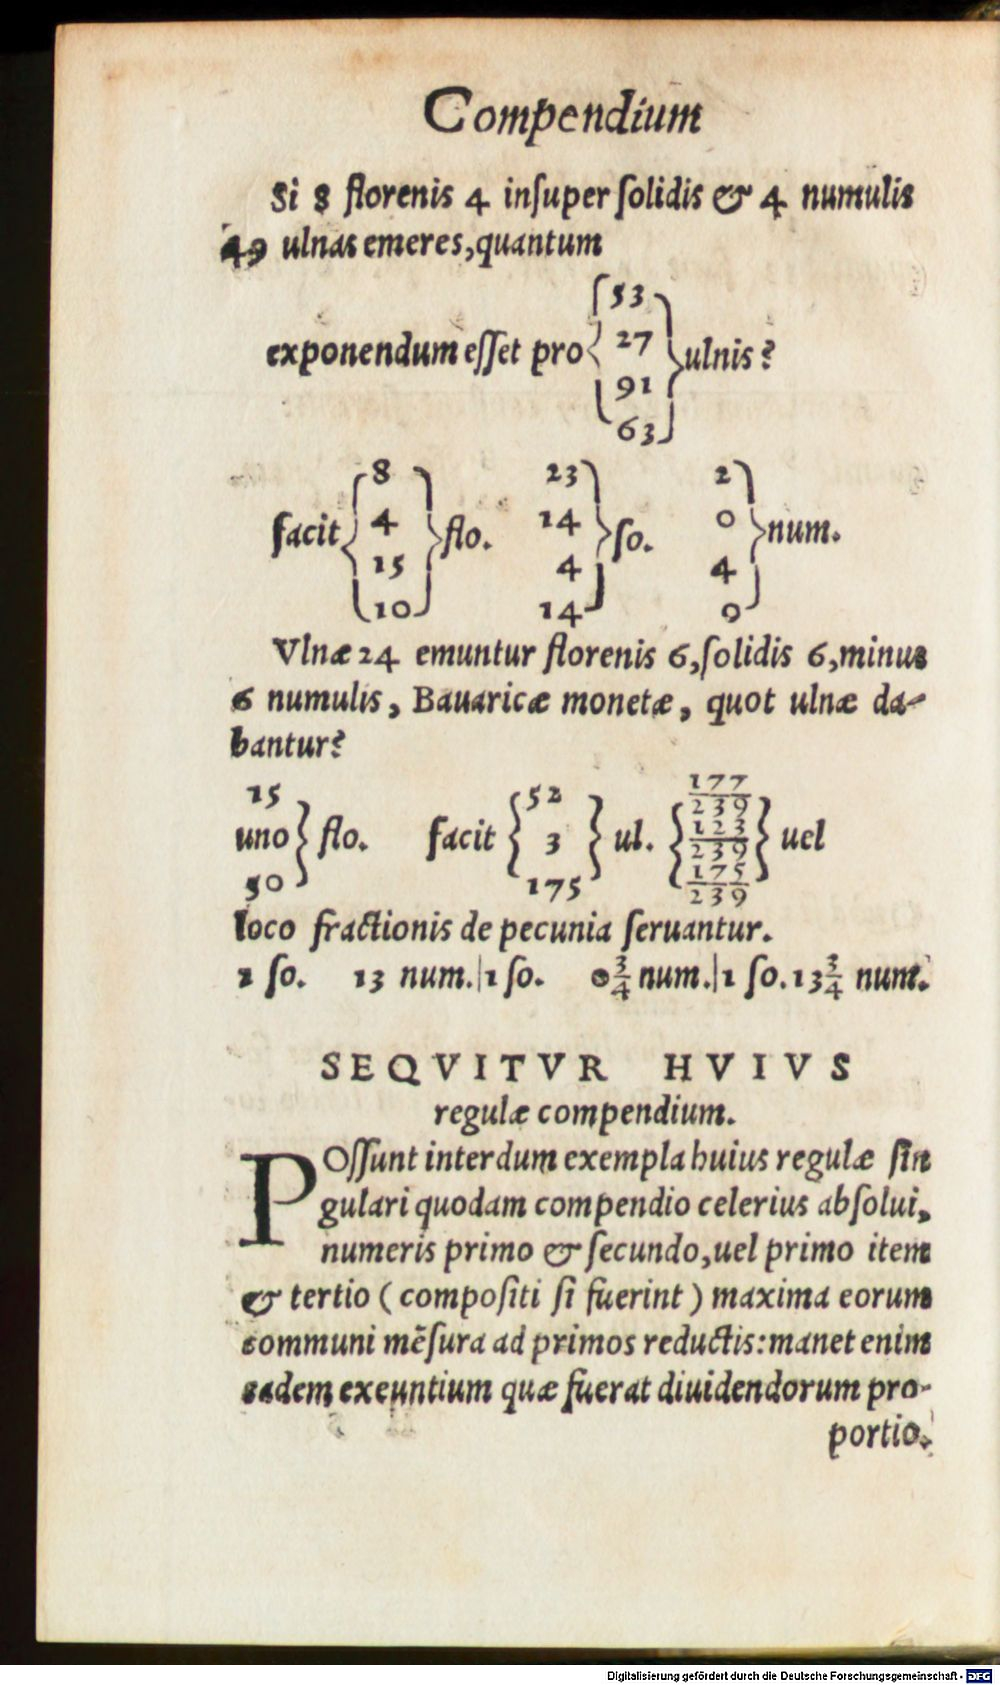 Compendium
Si 8 florenis 4 inſuper ſolidis & 4 numulis
49 ulnas emeres, quantum
53
27
exponendum eſſet pro ulnis?
91
63
8 23 2
4 14 0
facit flo. ſo. num.
15 4 4
10 14 9
Vlnæ 24 emuntur florenis 6, ſolidis 6, minus
6 numulis, Bauaricæ monetæ, quot ulnæ da-
bantur?
15 52 177/239
uno flo. facit 3 ul. 123/239 uel
50 175 175/239
loco fractionis de pecunia ſeruantur.
1 ſo. 13 num. | 1 ſo. 0 3/4 num. | 1 ſo. 13 3/4 num.
SEQVITVR HVIVS
regulæ compendium.
POſſunt interdum exempla huius regulæ ſin
gulari quodam compendio celerius abſolui,
numeris primo & ſecundo, uel primo item
& tertio ( compoſiti ſi fuerint ) maxima eorum
communi mẽſura ad primos reductis: manet enim
eadem exeuntium quæ fuerat diuidendorum pro-
portio.
Digitalisierung gefördert durch die Deutsche Forschungsgemeinschaft - DFG